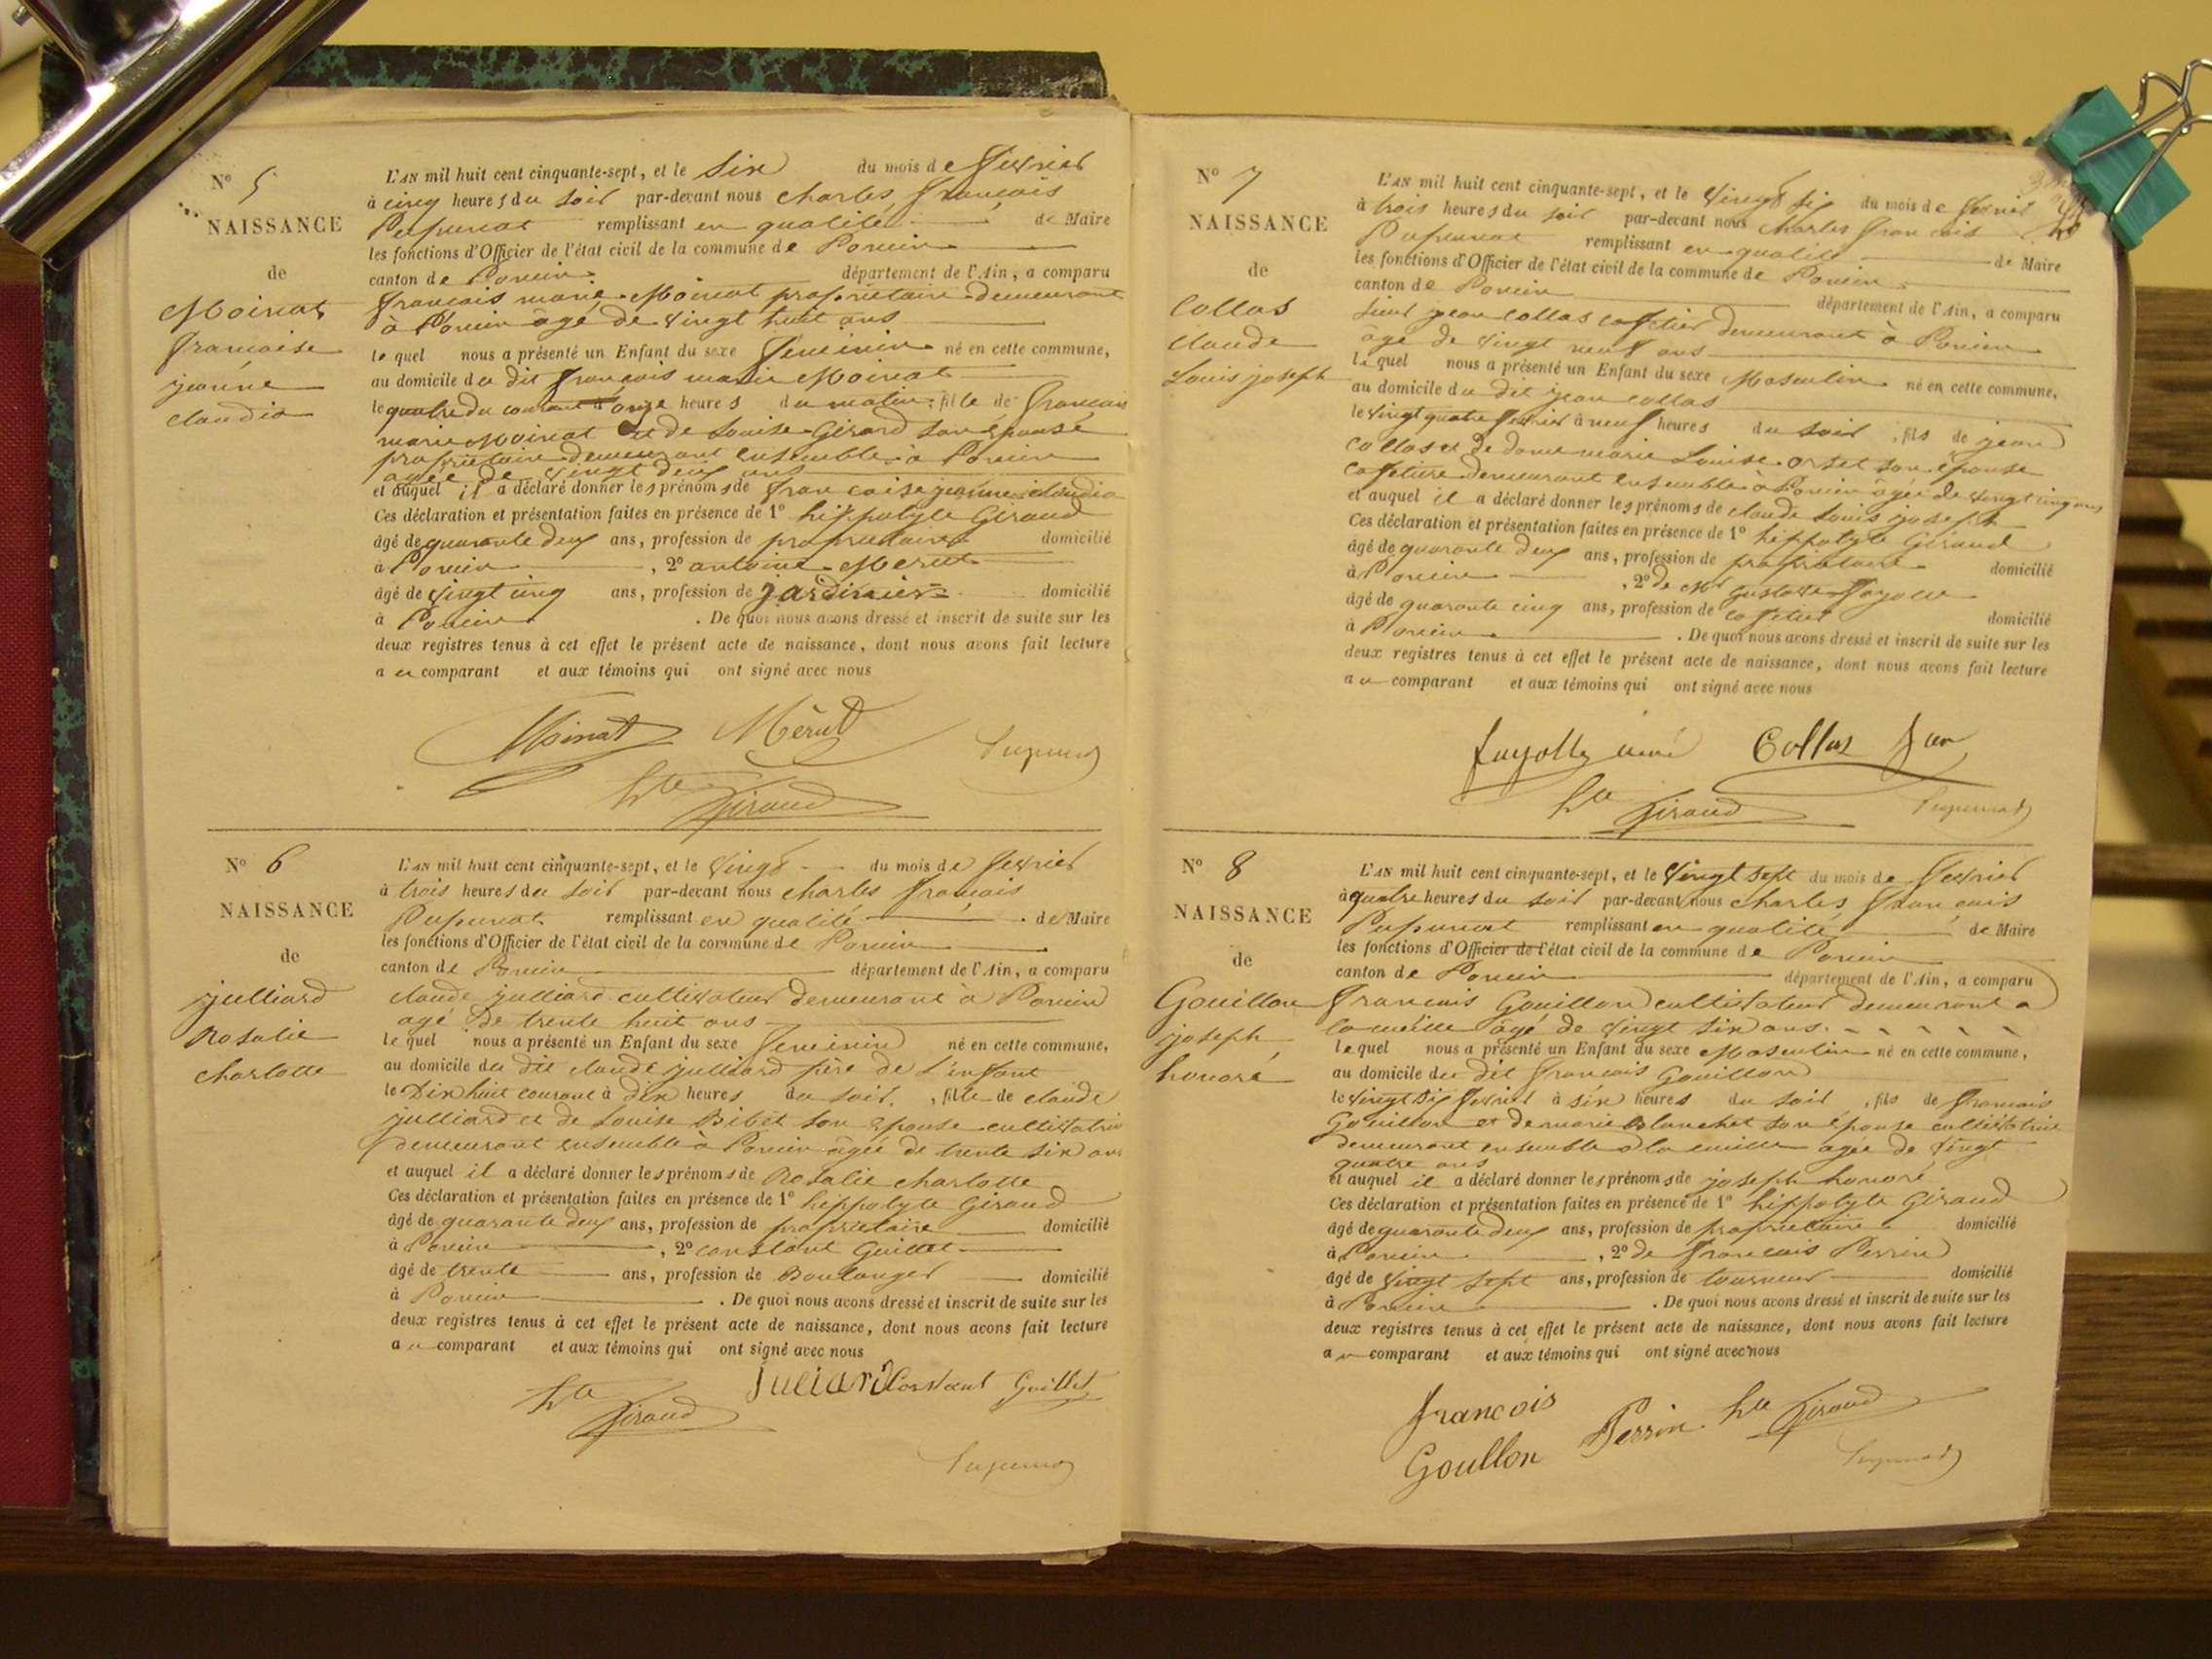 N° 5
NAISSANCE
de
Moinat
francoise
jeanne
claudia
L'AN mil huit cent cinquante-sept, et le Six du mois de fevrier
à cinq heures du soir par-devant nous charles françois
Pupunat remplissant en qualité de Maire
les fonctions d'Officier de l'état civil de la commune de Poncin
canton de Poncin département de l'Ain, a comparu
francois marie Moinat propriétaire demeurant
à Poncin âgé de vingt huit ans
lequel nous a présenté un Enfant du sexe féminin né en cette commune,
au domicile du dit françois marie Moinat
le quatre du courant à onze heures du matin, fille de francois
marie Moinat et de Louise Girard son épouse
propriétaire demeurant ensemble à Poncin
agée de vingt deux ans
et auquel il a déclaré donner les prénoms de francoise jeanne claudia
Ces déclaration et présentation faites en présence de 1° hippolyte Giraud
âgé de quarante deux ans, profession de propriétaire domicilié
à Poncin, 2° antoine Merut
âgé de vingt cinq ans, profession de jardinier domicilié
à Poncin. De quoi nous avons dressé et inscrit de suite sur les
deux registres tenus à cet effet le présent acte de naissance, dont nous avons fait lecture
au comparant et aux témoins qui ont signé avec nous
Moinat Mérut
Pupunat
hte Giraud
N° 6
NAISSANCE
de
julliard
Rosalie
charlotte
L'AN mil huit cent cinquante-sept, et le vingt du mois de fevrier
à trois heures du soir par-devant nous charles françois
Pupunat remplissant en qualité de Maire
les fonctions d'Officier de l'état civil de la commune de Poncin
canton de Poncin département de l'Ain, a comparu
claude julliard cultivateur demeurant à Poncin
agé de trente huit ans
lequel nous a présenté un Enfant du sexe féminin né en cette commune,
au domicile du dit claude julliard père de l'enfant
le Dix huit courant à dix heures du soir, fille de claude
julliard et de Louise Bibet son epouse cultivatrice
demeurant ensemble à Poncin âgée de trente six ans
et auquel il a déclaré donner les prénoms de Rosalie charlotte
Ces déclaration et présentation faites en présence de 1° hippolyte Giraud
âgé de quarante deux ans, profession de propriétaire domicilié
à Poncin, 2° constant Guillet
âgé de trente ans, profession de Boulanger domicilié
à Poncin. De quoi nous avons dressé et inscrit de suite sur les
deux registres tenus à cet effet le présent acte de naissance, dont nous avons fait lecture
au comparant et aux témoins qui ont signé avec nous
Juliard Constant Guillet
hte Giraud
Pupunat
N° 7
NAISSANCE
de
Collas
claude
Louis joseph
L'AN mil huit cent cinquante-sept, et le vingt six du mois de fevrier
à trois heures du soir par-devant nous charles francois
Pupunat remplissant en qualité de Maire
les fonctions d'Officier de l'état civil de la commune de Poncin
canton de Poncin département de l'Ain, a comparu
Sieur jean collas cafetier demeurant à Poncin
âgé de vingt neuf ans
lequel nous a présenté un Enfant du sexe Masculin né en cette commune,
au domicile du dit jean collas
le vingt quatre fevrier à neuf heures du soir, fils de jean
collas et de dame marie Louise orset son épouse
cafetière demeurant ensemble à Poncin âgée de vingt cinq ans
et auquel il a déclaré donner les prénoms de claude Louis joseph
Ces déclaration et présentation faites en présence de 1° hippolyte Giraud
âgé de quarante deux ans, profession de propriétaire domicilié
à Poncin, 2° de Mr Gustave fayolle
âgé de quarante cinq ans, profession de cafetier domicilié
à Poncin. De quoi nous avons dressé et inscrit de suite sur les
deux registres tenus à cet effet le présent acte de naissance, dont nous avons fait lecture
au comparant et aux témoins qui ont signé avec nous
fayolle Collas
hte Giraud Pupunat
N° 8
NAISSANCE
de
Gouillon
joseph
honoré
L'AN mil huit cent cinquante-sept, et le vingt sept du mois de fevrier
à quatre heures du soir par-devant nous charles francois
Pupunat remplissant en qualité de Maire
les fonctions d'Officier de l'état civil de la commune de Poncin
canton de Poncin département de l'Ain, a comparu
francois Gouillon cultivateur demeurant a
la cueille âgé de vingt six ans.
lequel nous a présenté un Enfant du sexe Masculin né en cette commune,
au domicile du dit francois Gouillon
le vingt six fevrier à six heures du soir, fils de francois
Gouillon et de marie Blanchet son épouse cultivatrice
demeurant ensemble à la cueille agée de vingt
quatre ans
et auquel il a déclaré donner les prénoms de joseph honoré
Ces déclaration et présentation faites en présence de 1° hippolyte Giraud
âgé de quarante deux ans, profession de propriétaire domicilié
à Poncin, 2° de francois Perrin
âgé de vingt sept ans, profession de tourneur domicilié
à Poncin. De quoi nous avons dressé et inscrit de suite sur les
deux registres tenus à cet effet le présent acte de naissance, dont nous avons fait lecture
au comparant et aux témoins qui ont signé avec nous
francois
Goullon Perrin hte Giraud
Pupunat